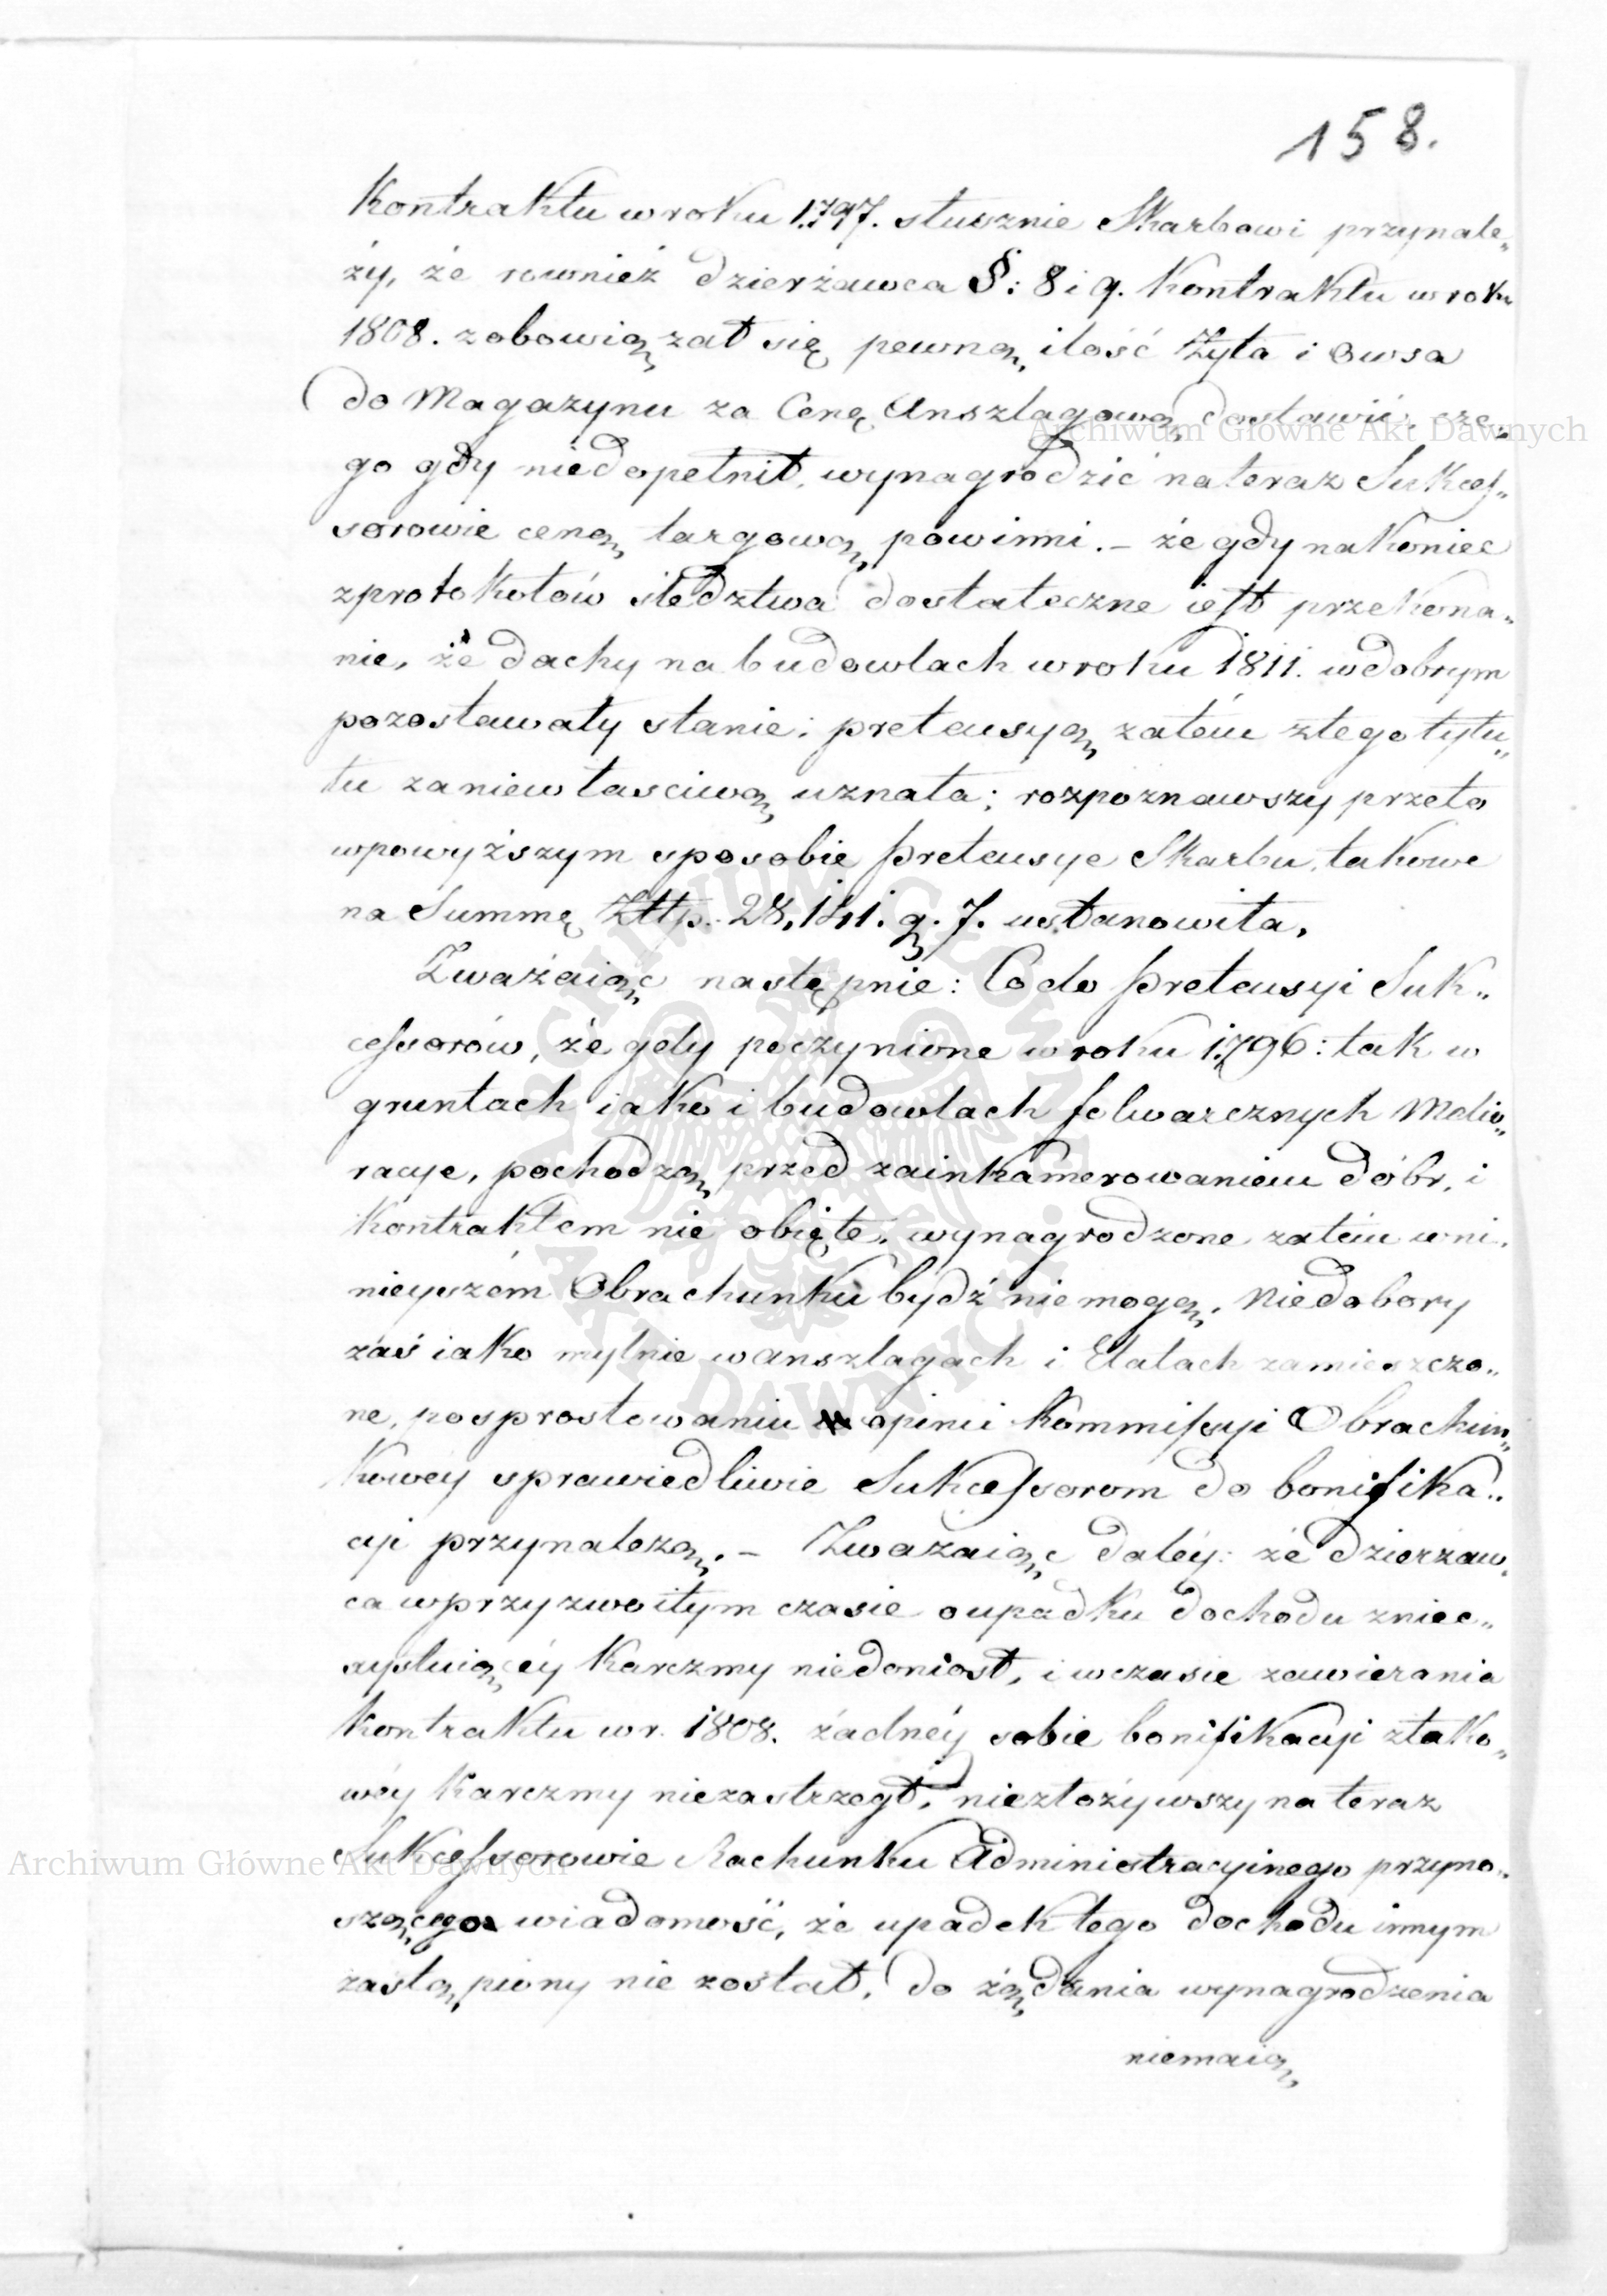 158.
Kontraktu w roku 1797. słusznie Skarbowi przynale„
ży, że rownież dzierżawca §: 8 i 9. Kontraktu w roku
1808. zobowiązał się pewną ilość Żyta i Owsa
do Magazynu za Cenę Anszlagową dostawić, cze„
go gdy niedopełnił, wynagrodzić na teraz Sukces„
sorowie ceną targową powinni. – że gdy nakoniec
z protokołów śledztwa dostateczne iest przekona„
nie, że dachy na budowlach w roku 1811. w dobrym
pozostawały stanie; pretensyą zatém z tego tytu„
łu za niewłasciwą uznała; rozpoznawszy przeto
w powyższym sposobie pretensye Skarbu, takowe
na Summę Złtp. 28,141. g. 7. ustanowiła,
Zważaiąc następnie: Co do pretensyi Suk„
cessorów, że gdy poczynione w roku 1796: tak w
gruntach iako i budowlach folwarcznych Melio„
racye, pochodzą przed zainkamerowaniem dóbr, i
Kontraktem nie obięte, wynagrodzone zatém w ni„
nieyszém Obrachunku bydź nie mogą, Niedobory
zaś iako mylnie w anszlagach i Etatach zamieszczo„
ne, po sprostowaniu opinii Kommissyi Obrachun„
kowéy sprawiedliwie Sukcessorom do bonifika„
cyi przynależą. – Zważaiąc daléy: że dzierżaw„
ca w przyzwoitym czasie o upadku dochodu z niee„
xystuiącéy Karczmy niedoniósł, i w czasie zawierania
Kontraktu w r. 1808. żadnéy sobie bonifikacyi z tako„
wéy Karczmy niezastrzegł, niezłożywszy na teraz
Sukcessorowie Rachunku Administracyinego przyno„
szącego wiadomość, że upadek tego dochodu innym
zastąpiony nie został, do żądania wynagrodzenia
niemaią,
Archiwum Główne Akt Dawnych
Archiwum Główne Akt Dawnych
ARCHIWUM GŁÓWNE
AKT DAWNYCH